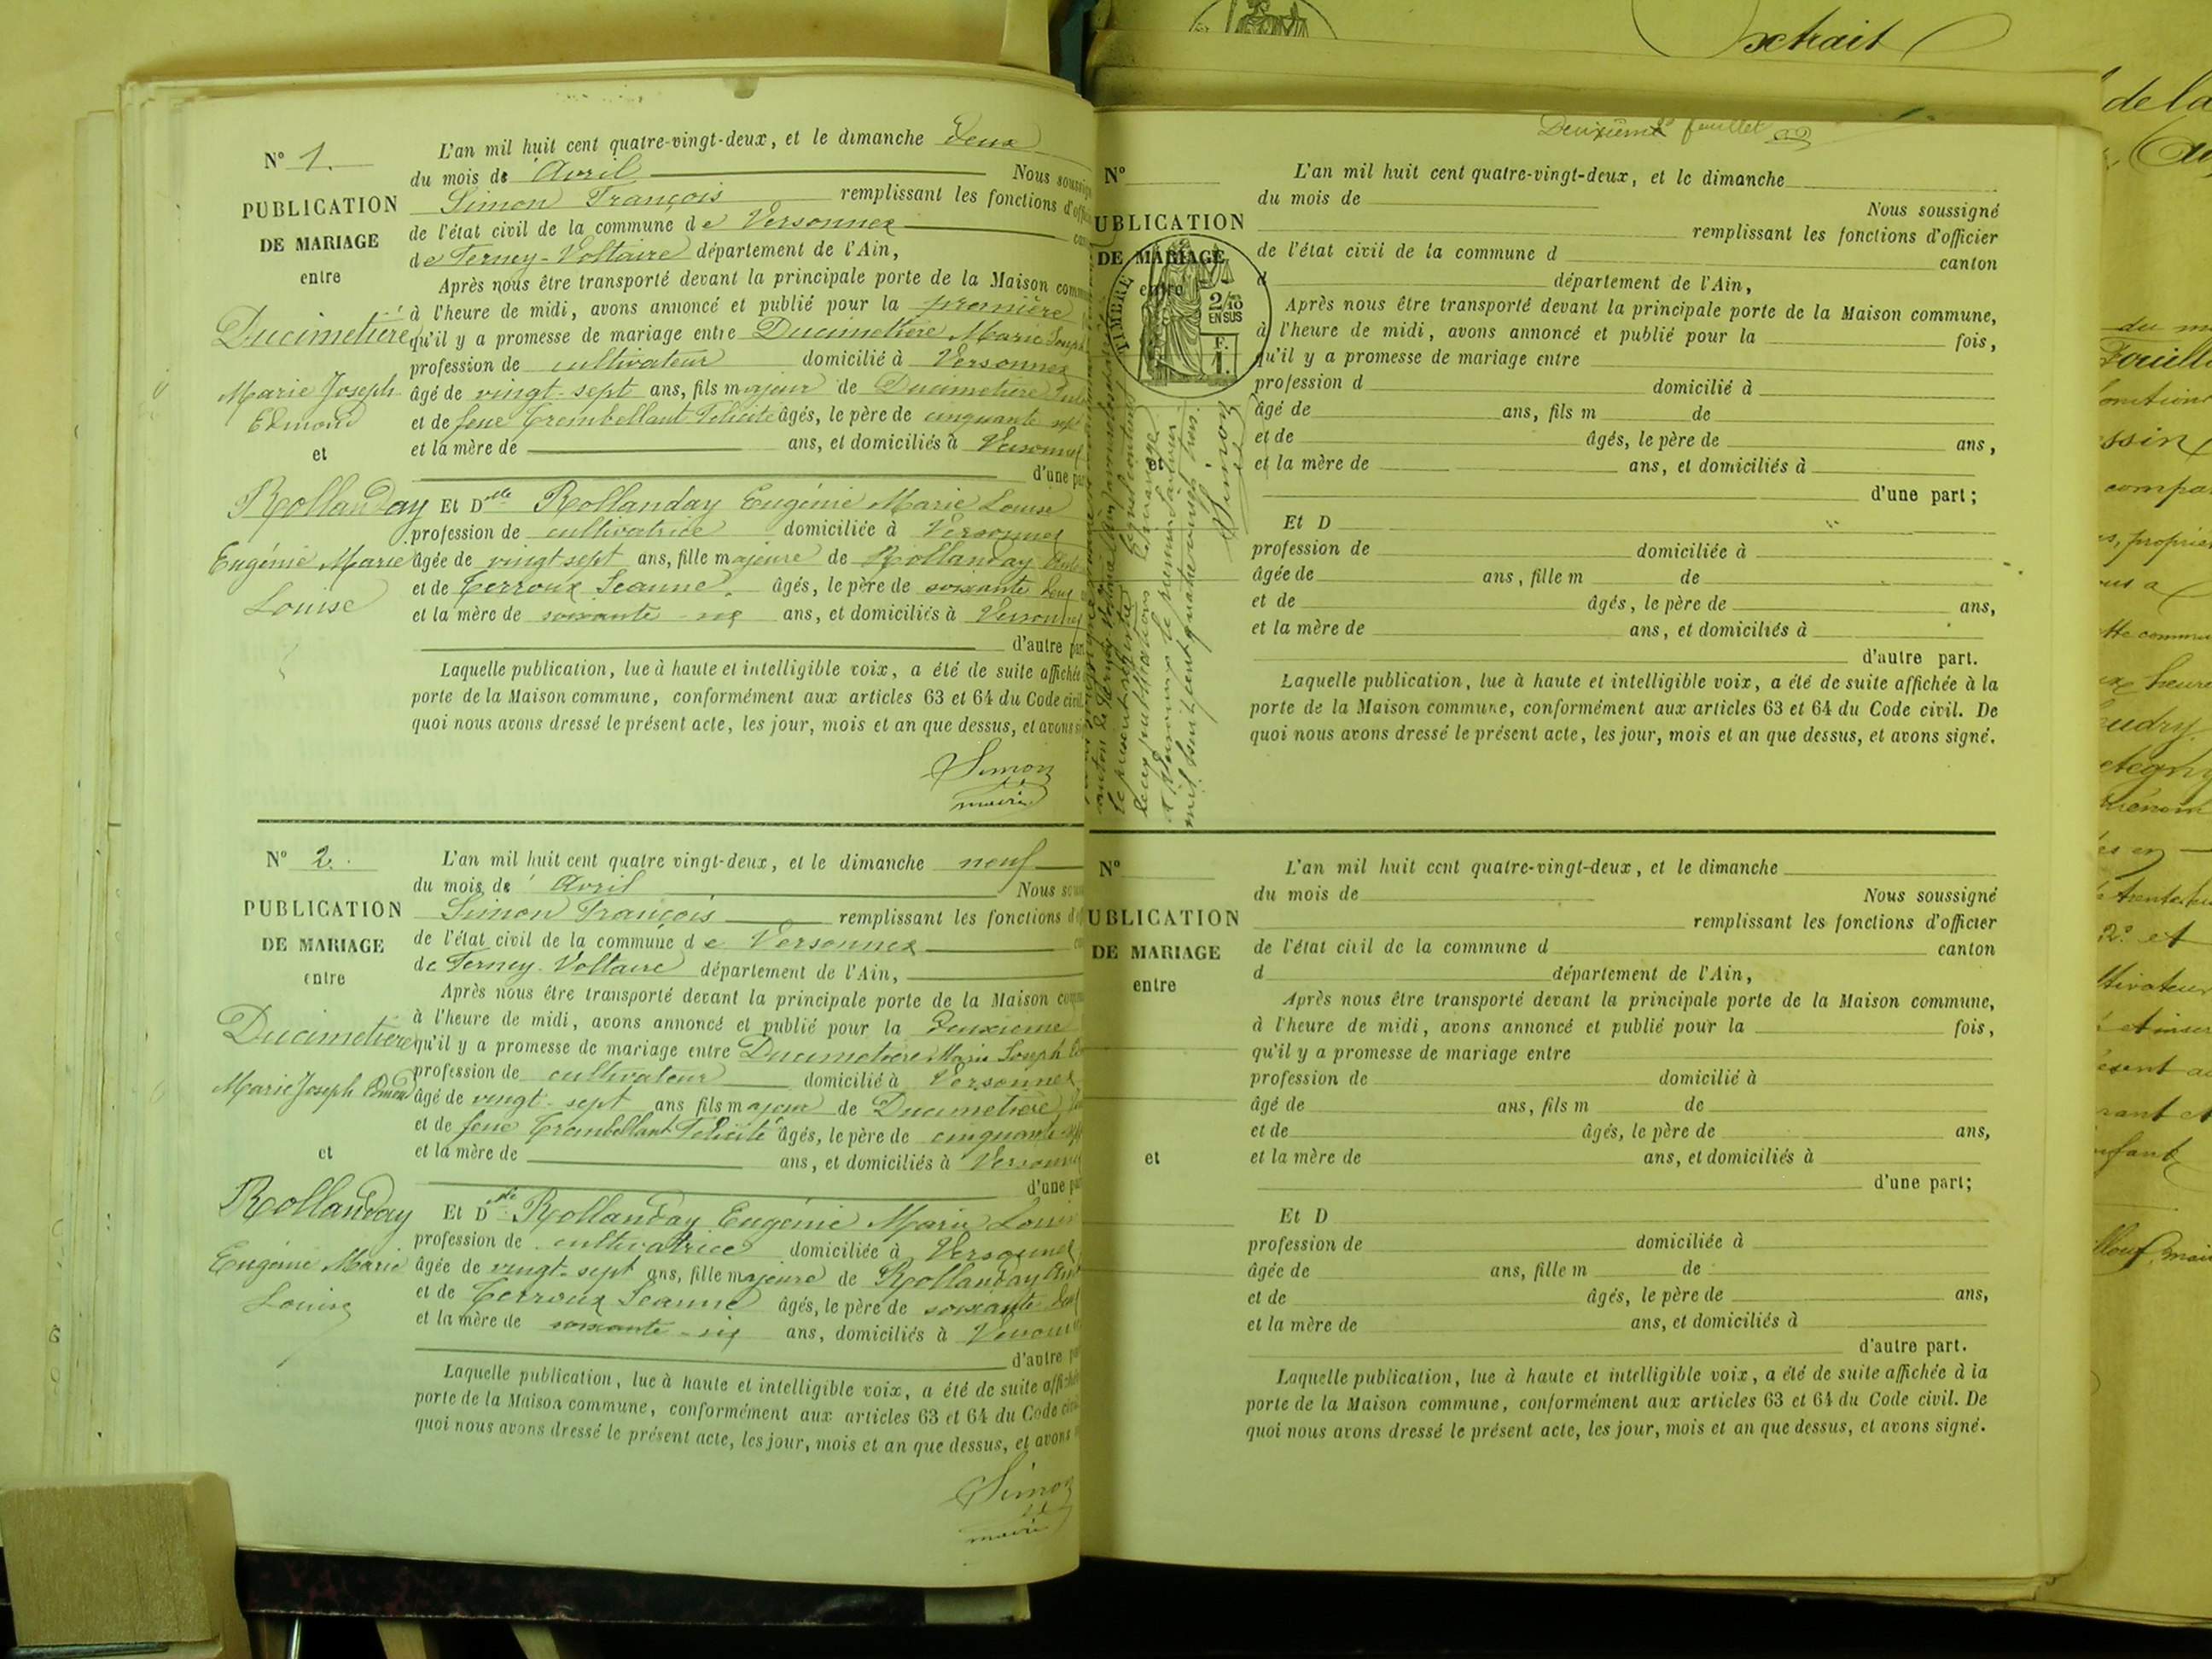 N° 1.
PUBLICATION
DE MARIAGE
entre
Ducimetière
Marie Joseph
Edmond
et
Rollanday
Eugénie Marie
Louise
L'an mil huit cent quatre-vingt-deux, et le dimanche deux
du mois de Avril Nous soussig
Simon François remplissant les fonctions d'offic
de l'état civil de la commune de Versonnex
de Ferney-Voltaire département de l'Ain,
Après nous être transporté devant la principale porte de la Maison comm
à l'heure de midi, avons annoncé et publié pour la première
qu'il y a promesse de mariage entre Ducimetière Marie Joseph
profession de cultivateur domicilié à Versonnex
âgé de vingt-sept ans, fils majeur de Ducimetière
et de feue Trembellant Félicité âgés, le père de cinquante sept
et la mère de ans, et domiciliés à Versonnex
d'une par
Et Dlle Rollanday Eugénie Marie Louise
profession de cultivatrice domiciliée à Versonnex
âgée de vingt sept ans, fille majeure de Rollanday
et de Terroux Jeanne. âgés, le père de soixante deux
et la mère de soixante-six ans, et domiciliés à Versonnex
d'autre par
Laquelle publication, lue à haute et intelligible voix, a été de suite affichée
porte de la Maison commune, conformément aux articles 63 et 64 du Code civil.
quoi nous avons dressé le présent acte, les jour, mois et an que dessus, et avons
Simon
maire
N° 2.
PUBLICATION
DE MARIAGE
entre
Ducimetière
Marie Joseph Edmond
et
Rollanday
Eugénie Marie
Louise
L'an mil huit cent quatre vingt-deux, et le dimanche neuf
du mois de Avril Nous sou
Simon François remplissant les fonctions d'of
de l'état civil de la commune de Versonnex
de Ferney-Voltaire département de l'Ain,
Après nous être transporté devant la principale porte de la Maison comm
à l'heure de midi, avons annoncé et publié pour la deuxième
qu'il y a promesse de mariage entre Ducimetière Marie Joseph
profession de cultivateur domicilié à Versonnex
âgé de vingt-sept ans fils majeur de Ducimetière
et de feue Trembellant Félicité âgés, le père de cinquante sept
et la mère de ans, et domiciliés à Versonnex
d'une par
Et Dlle Rollanday Eugénie Marie Louise
profession de cultivatrice domiciliée à Versonnex
âgée de vingt-sept ans, fille majeure de Rollanday
et de Terroux Jeanne âgés, le père de soixante deux
et la mère de soixante-six ans, domiciliés à Versonnex
d'autre par
Laquelle publication, lue à haute et intelligible voix, a été de suite affichée
porte de la Maison commune, conformément aux articles 63 et 64 du Code civil
quoi nous avons dressé le présent acte, les jour, mois et an que dessus, et avons
Simon
maire
Deuxième feuillet
N°
UBLICATION
DE MARIAGE
entre
TIMBRE
2/10
EN SUS
F.
1.
et
canton de Ferney
le présent
deux publications de mariage
à Versonnex le premier janvier
mil huit cent quatre vingt trois.
Simon
L'an mil huit cent quatre-vingt-deux, et le dimanche
du mois de Nous soussigné
remplissant les fonctions d'officier
de l'état civil de la commune d canton
d département de l'Ain,
Après nous être transporté devant la principale porte de la Maison commune,
à l'heure de midi, avons annoncé et publié pour la fois,
qu'il y a promesse de mariage entre
profession d domicilié à
âgé de ans, fils m de
et de âgés, le père de ans,
et la mère de ans, et domiciliés à
d'une part;
Et D
profession de domiciliée à
âgée de ans, fille m de
et de âgés, le père de ans,
et la mère de ans, et domiciliés à
d'autre part.
Laquelle publication, lue à haute et intelligible voix, a été de suite affichée à la
porte de la Maison commune, conformément aux articles 63 et 64 du Code civil. De
quoi nous avons dressé le présent acte, les jour, mois et an que dessus, et avons signé.
N°
UBLICATION
DE MARIAGE
entre
et
L'an mil huit cent quatre-vingt-deux, et le dimanche
du mois de Nous soussigné
remplissant les fonctions d'officier
de l'état civil de la commune d canton
d département de l'Ain,
Après nous être transporté devant la principale porte de la Maison commune,
à l'heure de midi, avons annoncé et publié pour la fois,
qu'il y a promesse de mariage entre
profession de domicilié à
âgé de ans, fils m de
et de âgés, le père de ans,
et la mère de ans, et domiciliés à
d'une part;
Et D
profession de domiciliée à
âgée de ans, fille m de
et de âgés, le père de ans,
et la mère de ans, et domiciliés à
d'autre part.
Laquelle publication, lue à haute et intelligible voix, a été de suite affichée à la
porte de la Maison commune, conformément aux articles 63 et 64 du Code civil. De
quoi nous avons dressé le présent acte, les jour, mois et an que dessus, et avons signé.
Extrait
de la